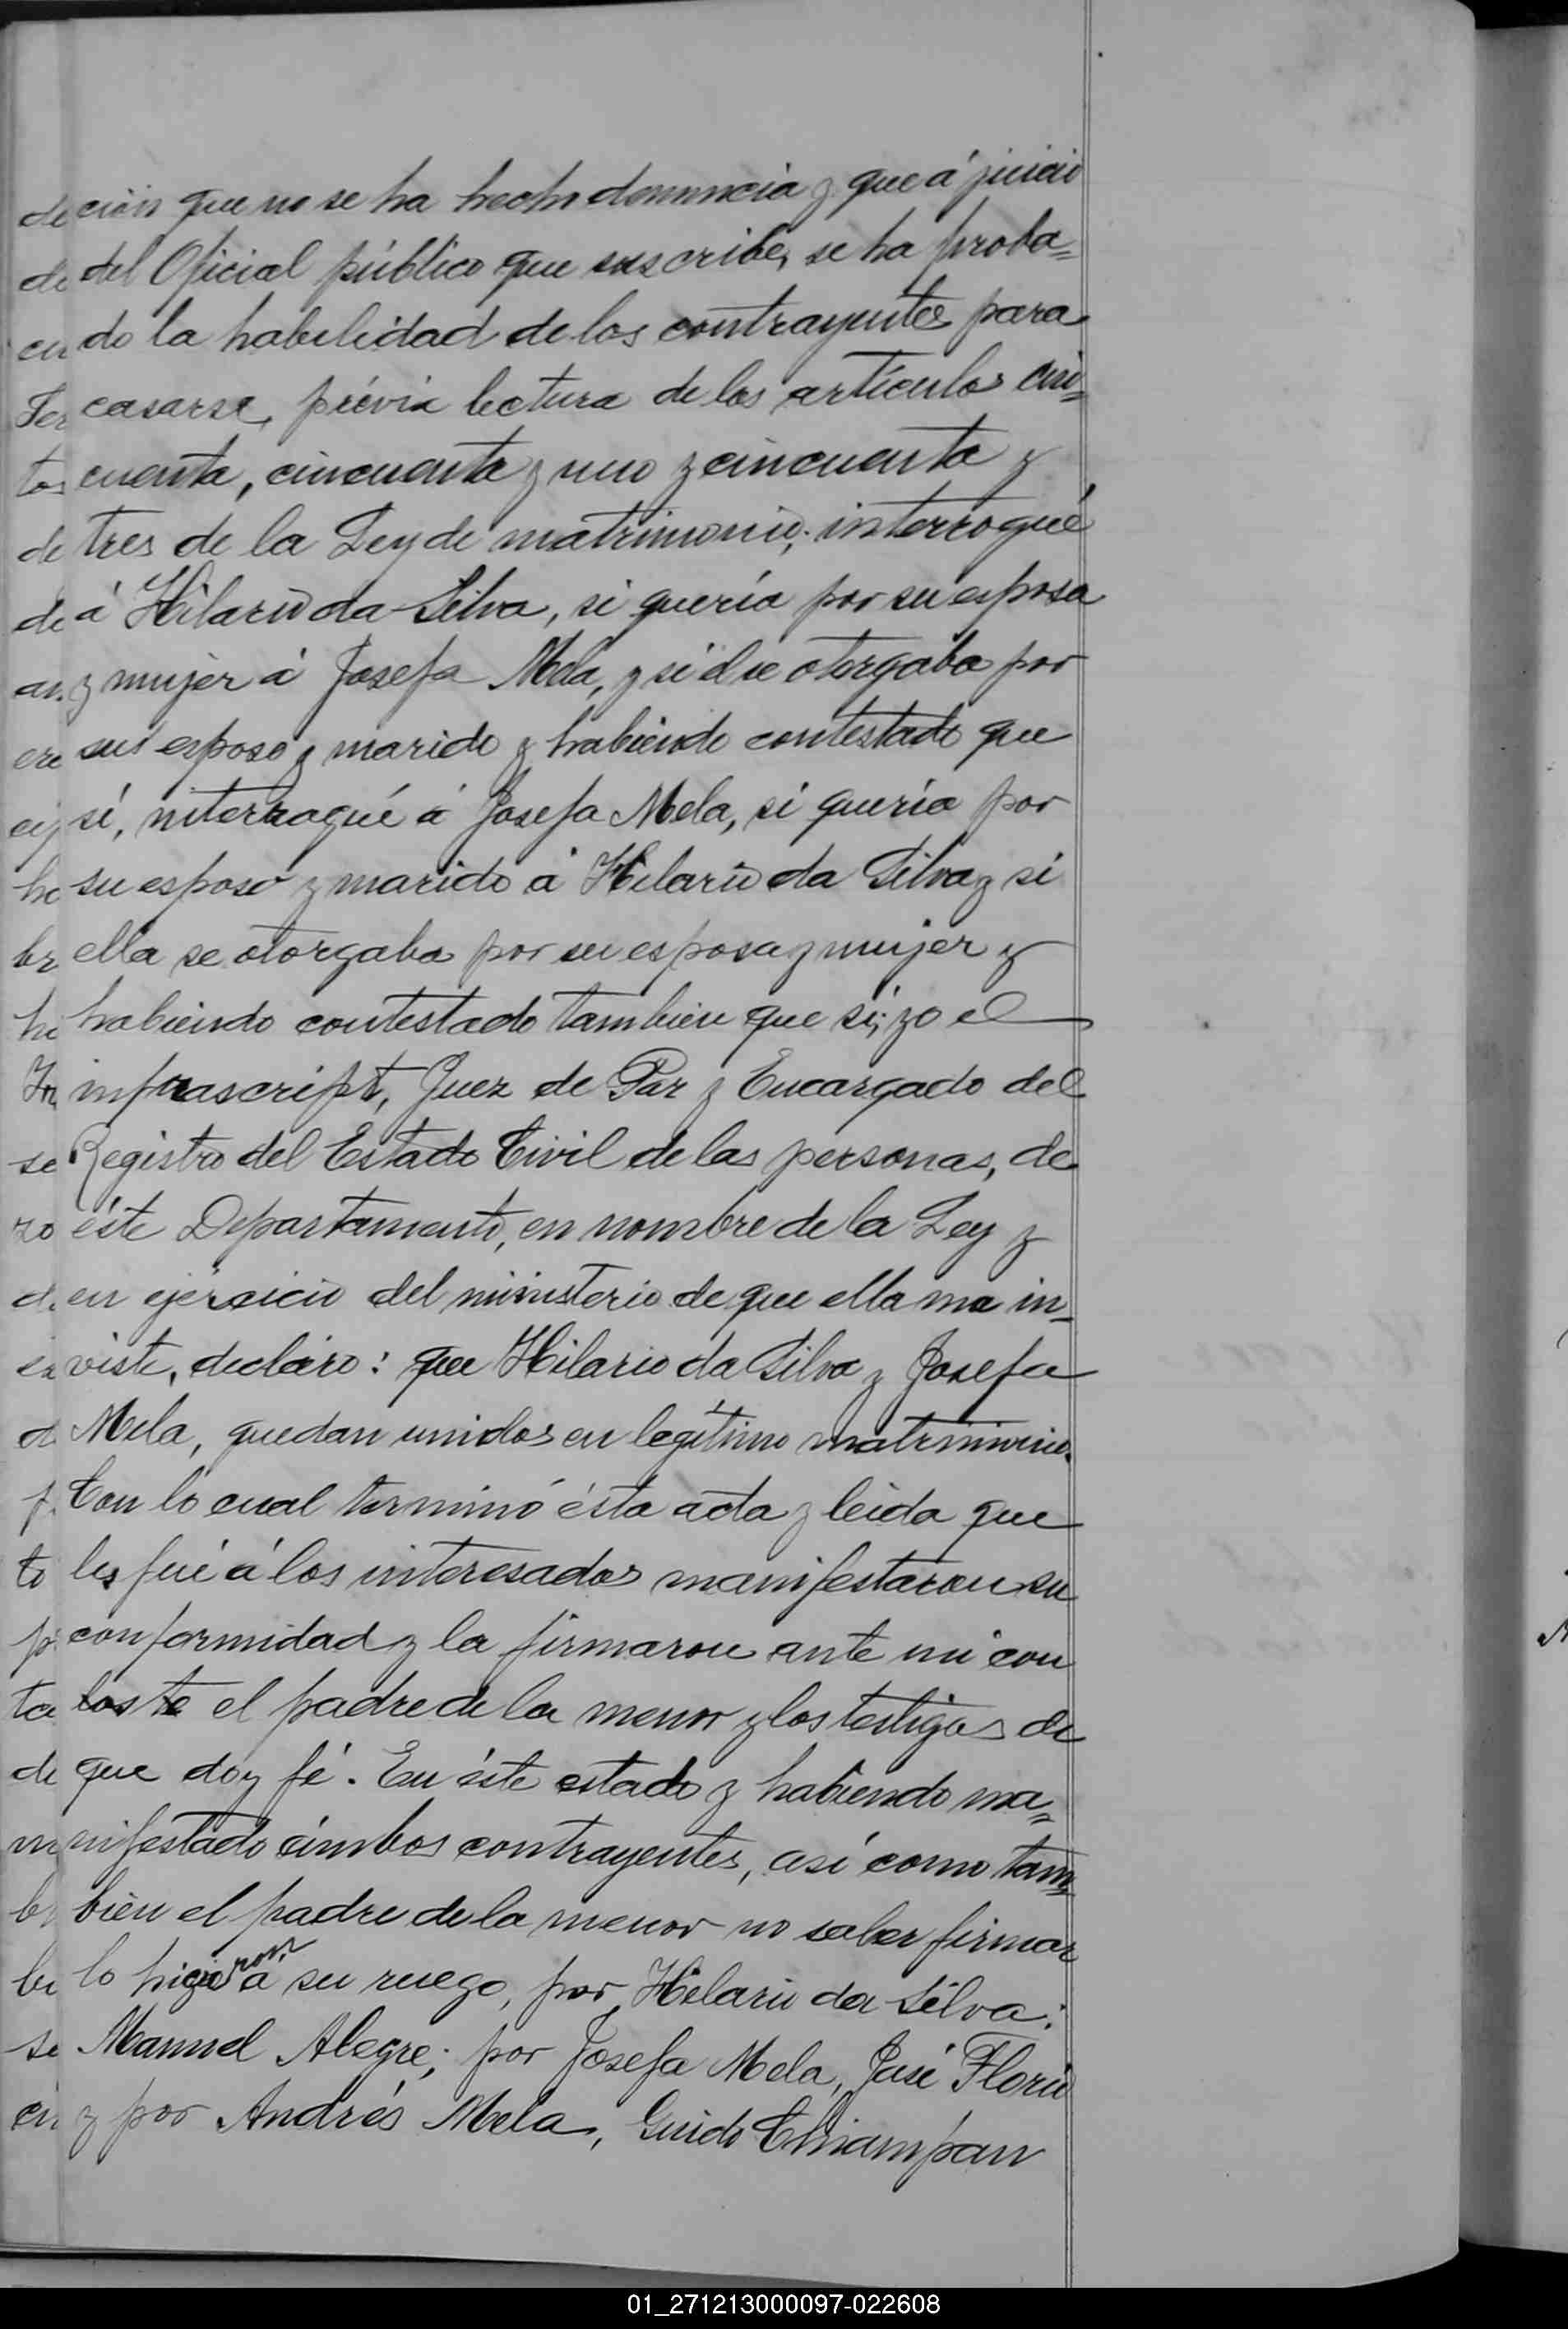 ción que no se ha hecho denuncia y que á juicio
del Oficial público que suscribe, se ha proba=
do la habilidad de los contrayentes para
casarse, prévia lectura de los artículos cin=
cuenta, cincuenta y uno y cincuenta y
tres de la Ley de matrimonio; interrogué
á Hilario da Silva, si quería por su esposa
y mujer á Josefa Mela, y si él se otorgaba por
su esposo y marido y habiendo contestado que
sí, interrogué á Josefa Mela, si quería por
su esposo y marido á Hilario da Silva y si
ella se otorgaba por su esposa y mujer y
habiendo contestado tambien que sí; yo el
infrascript, Juez de Paz y Encargado del
Registro del Estado Civil de las personas, de
éste Departamento, en nombre de la Ley y
en ejersicio del ministerio de que ella me in-
viste, declaro: que Hilario da Silva y Josefa
Mela, quedan unidos en legítimo matrimonio.
Con lo cual terminó ésta acta y leida que
les fué á los interesados manifestaron su
conformidad y la firmaron ante mi con
los te el padre de la menor y los testigos de
que doy fé. En éste estado y habiendo ma=
nifestado ámbos contrayentes, así como tam=
bien el padre de la menor no saber firmar
lo hicieron á su ruego, por Hilario da Silva:
Manuel Alegre; por Josefa Mela, José Florio
y por Andrés Mela, Guido Chiampan
01_271213000097-022608